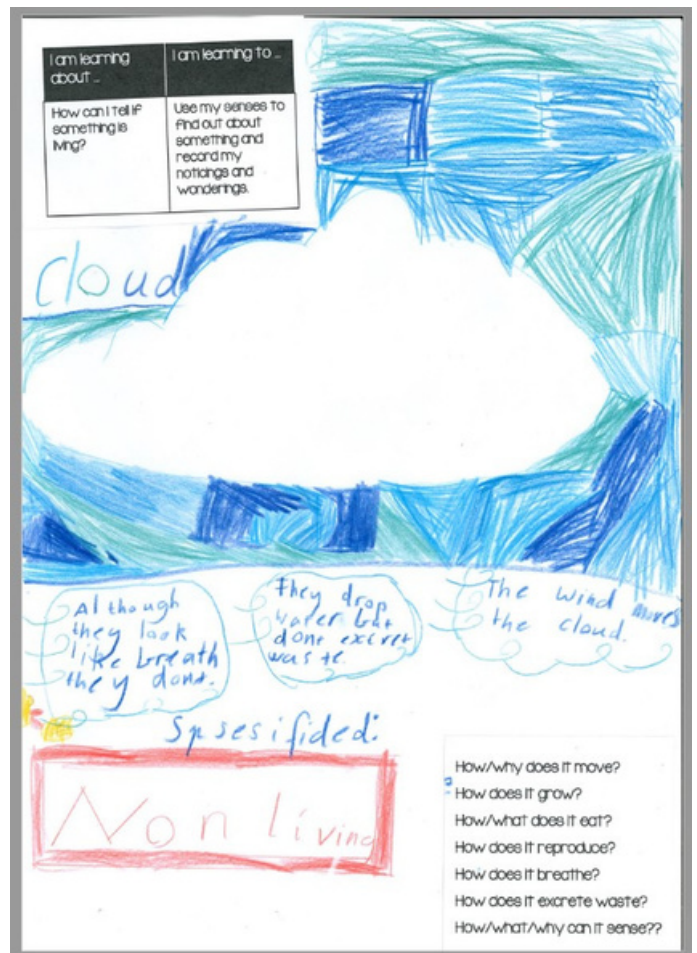 I am learning
about ...
I am learning to ...
How can I tell if
something is
living?
Use my senses to
find out about
something and
record my
noticings and
wonderings.
Cloud
Although
they look
like breath
they dont.
They drop
water but
dont excret
waste.
The wind moves
the cloud.
Spsesifided:
Non living
How/why does it move?
How does it grow?
How/what does it eat?
How does it reproduce?
How does it breathe?
How does it excrete waste?
How/what/why can it sense??